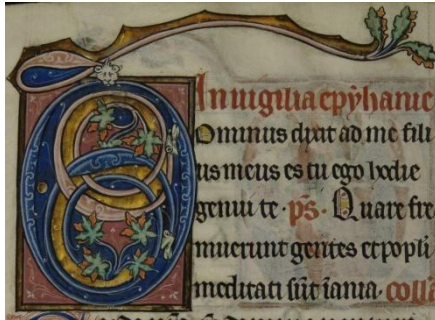 In uigilia epyhanie
Ominus dixit ad me fili
us meus es tu ego hodie
genui te. ps. Quare fre
muerunt gentes et popli
meditati sūt īania. coll̄a